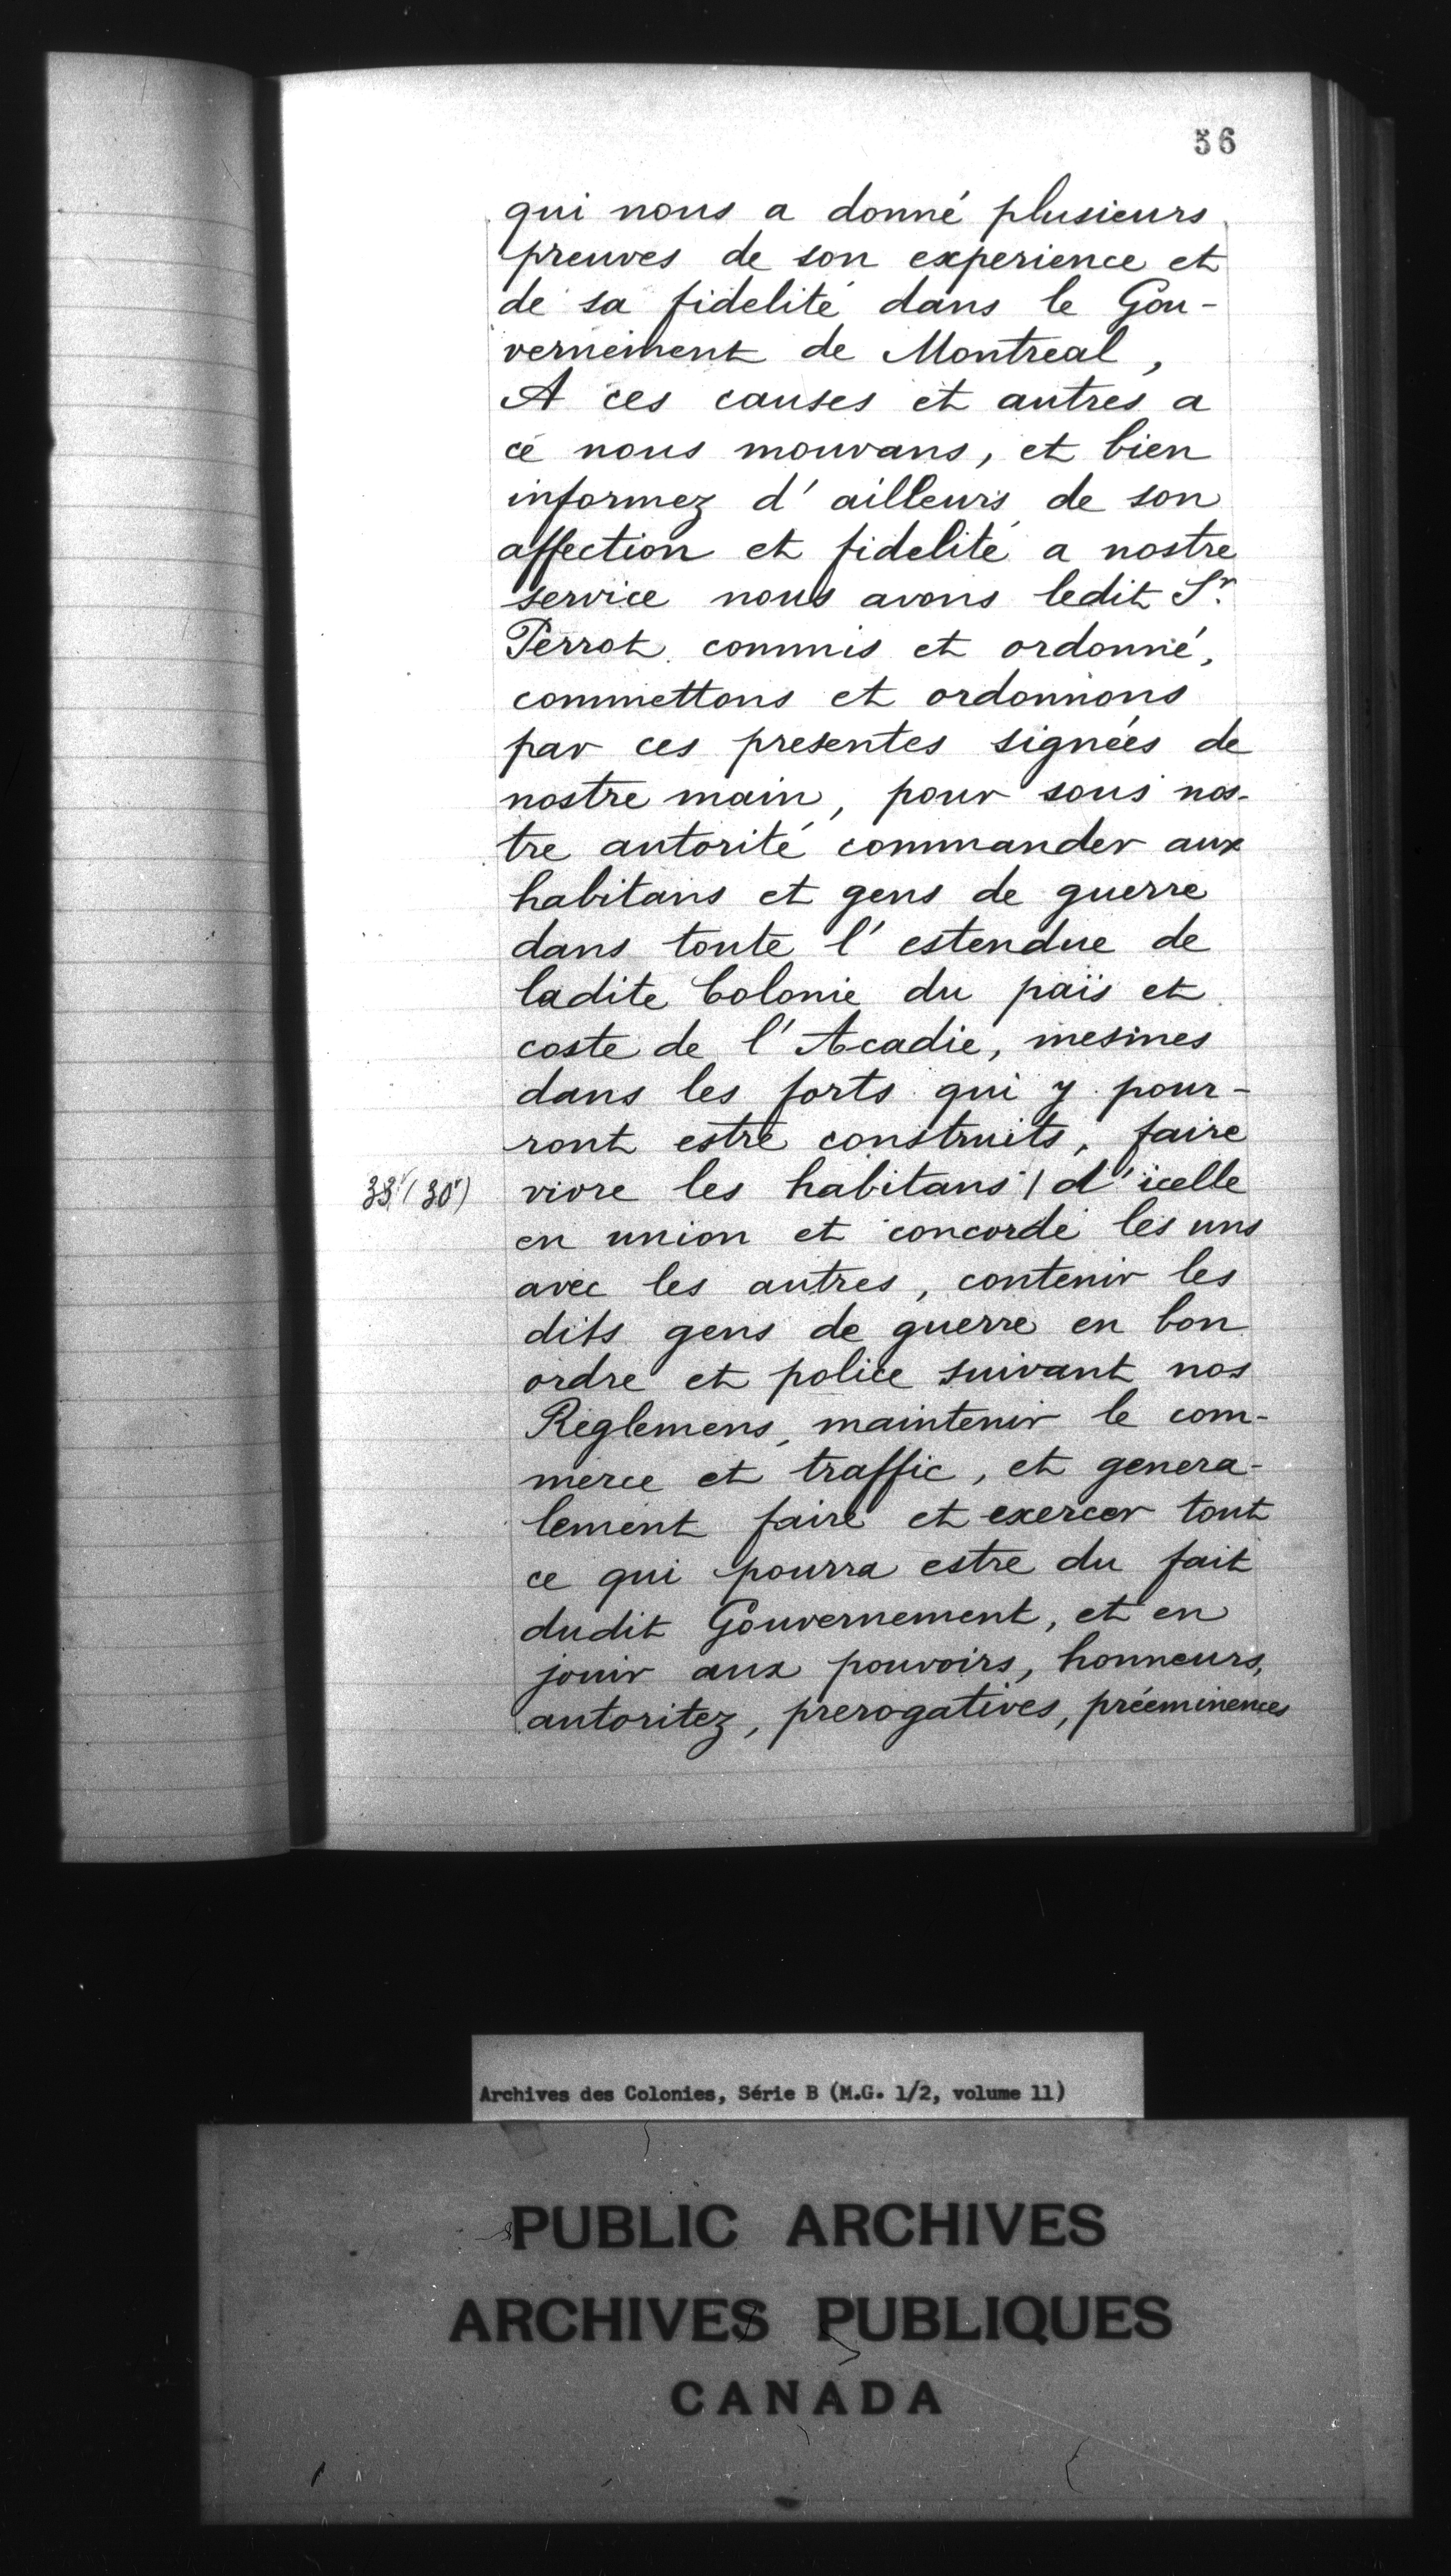 56
qui nous a donné plusieurs
preuves de son experience et
de sa fidelité dans le Gou-
vernement de Montreal,
A ces causes et autres a
ce nous mouvans, et bien
informez d'ailleurs de son
affection et fidelité a nostre
service nous avons ledit Sr.
Perrot commis et ordonné,
commettons et ordonnons
par ces presentes signées de
nostre main, pour sous nos-
tre autorité commander aux
habitans et gens de guerre
dans toute l'estendue de
ladite Colonie du païs et
coste de l'Acadie, mesmes
dans les forts qui y pour-
ront estre construits, faire
vivre les habitans / d'icelle
en union et concorde les uns
avec les autres, contenir les
dits gens de guerre en bon
ordre et police suivant nos
Reglemens, maintenir le com-
merce et traffic, et genera-
lement faire et exercer tout
ce qui pourra estre du fait
dudit Gouvernement, et en
jouir aux pouvoirs, honneurs,
autoritez, prerogatives, prééminences
Archives des Colonies, Série B (M.G. 1/2, volume 11)
PUBLIC ARCHIVES
ARCHIVES PUBLIQUES
CANADA